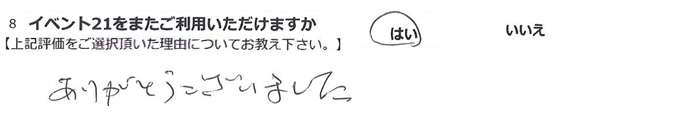 8 イベント21をまたご利用いただけますか はい いいえ
【上記評価をご選択頂いた理由についてお教え下さい。】
ありがとうございました